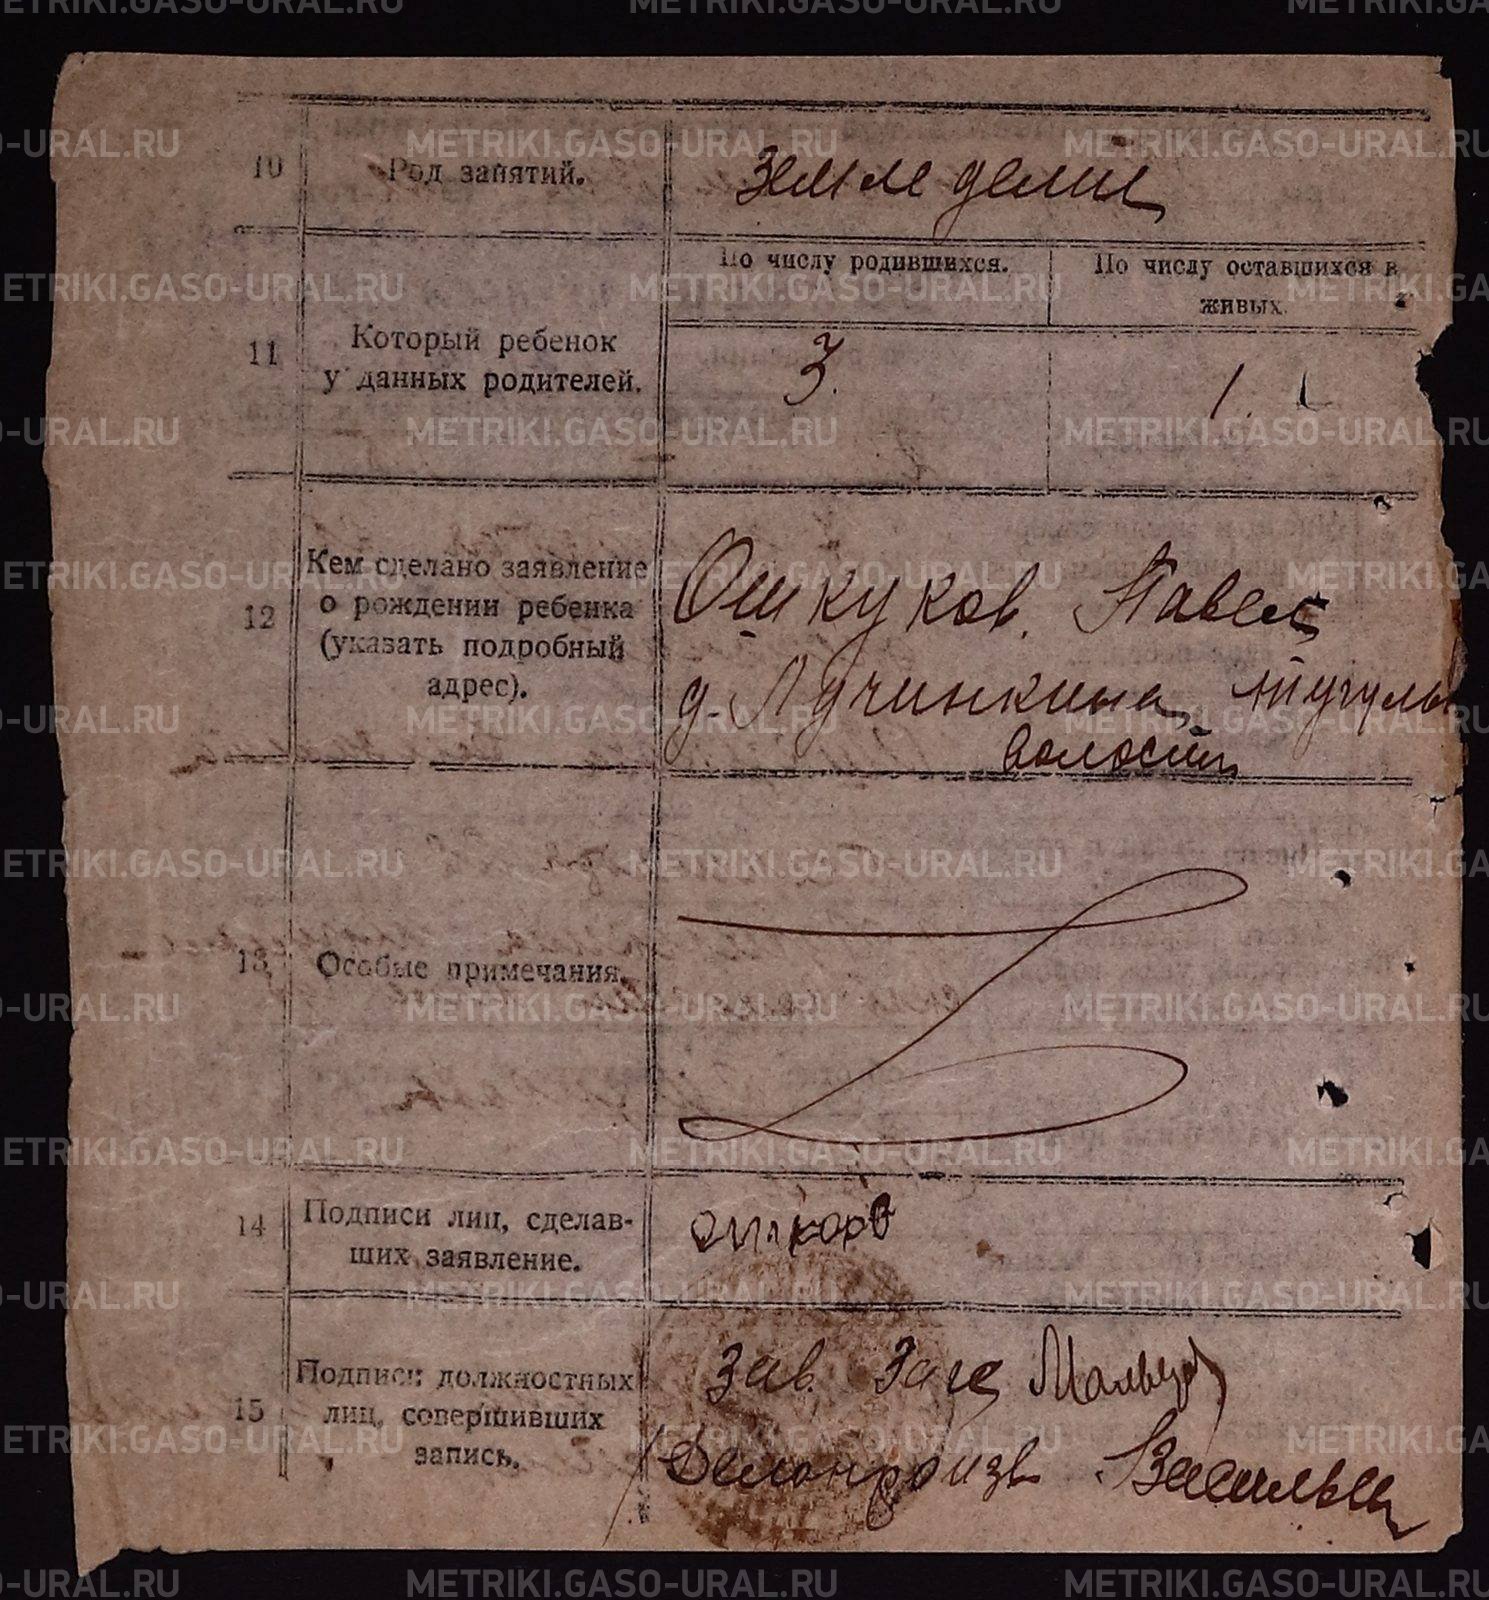 10 Род занятий. Земледелие
11 Который ребенок
у данных родителей.
По числу родившихся. По числу оставшихся в
живых.
3. 1.
12 Кем сделано заявление
о рождении ребенка
(указать подробный
адрес).
Ошкуков Павел
д. Лучинкина, Тугулы
волости
13 Особые примечания.
14 Подписи лиц, сделав-
ших заявление.
15 Подписи должностных
лиц, совершивших
запись.
Зав. Загс Мальцев
Делопроизв Васильев
METRIKI.GASO-URAL.RU